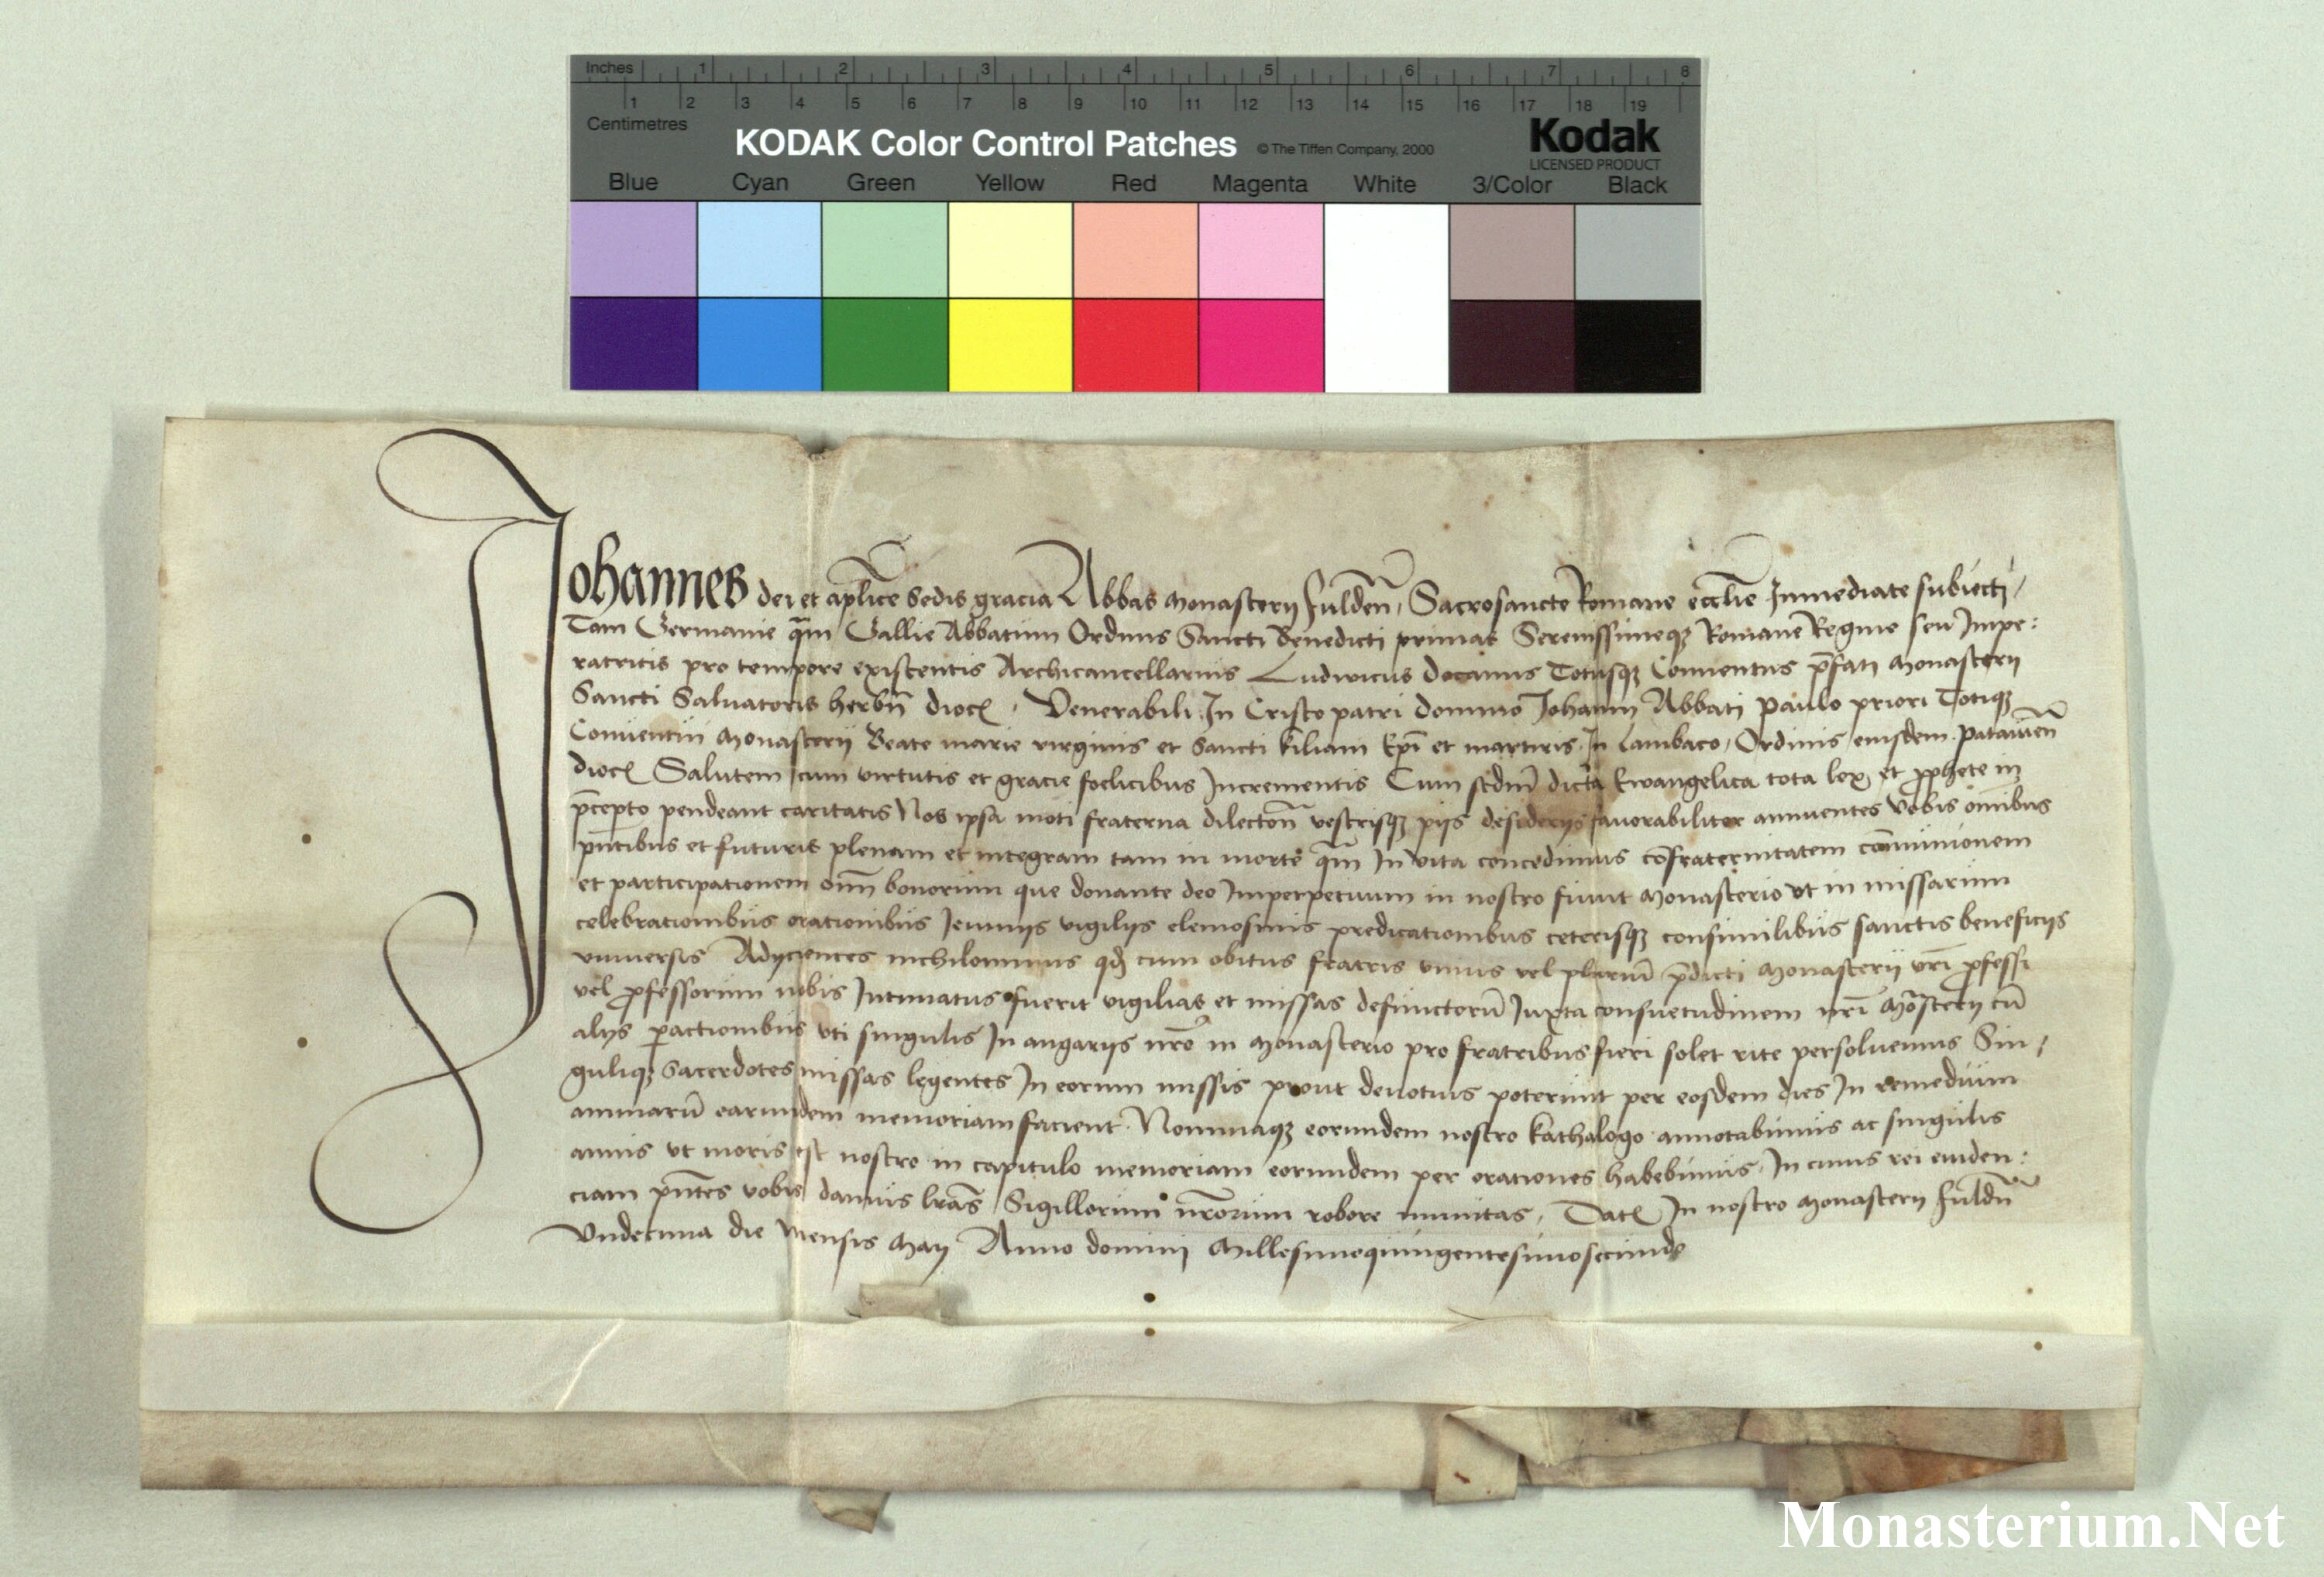 Inches 1 2 3 4 5 6 7 8
1 2 3 4 5 6 7 8 9 10 11 12 13 14 15 16 17 18 19
Centimetres
KODAK Color Control Patches © The Tiffen Company, 2000 Kodak
LICENSED PRODUCT
Blue Cyan Green Yellow Red Magenta White 3/Color Black
Johannes dei et aplice sedis gracia Abbas monasterij fulden, Sacrosancte Romane ecclie Inmediate subiecti,
Tam Germanie qm Gallie Abbatum Ordinis Sancti Benedicti primas Serenissimeqz Romane Regine seu Impe:
ratricis pro tempore existentis Archicancellarius Ludwicus decanus Totusqz Conuentus pfati monasterij
Sancti Saluatoris herbn dioc. Venerabili In Cristo patri domino Johanni Abbati paulo priori Totiqz
Conuentui monasterij Beate marie virginis et Sancti kiliani Epi et martiris In Lambaco, Ordinis eiusdem patauien
dioc Salutem cum virtutis et gracie foelicibus Incrementis Cum scdm dicta Ewangelica tota lex et prophete in
pcepto pendeant caritatis Nos ipsa moti fraterna dilecton vestrisqz pijs desiderijs fauorabiliter annuentes vobis omibus
pntibus et futuris plenam et integram tam in morte qm In vita concedimus cofraternitatem comunionem
et participationem oim bonorum que donante deo Imperpetuum in nostro fiunt monasterio vt in missarum
celebrationibus orationibus Jeiunijs vigilijs elemosinis predicationibus ceterisqz consimilibus sanctis beneficijs
vniuersis Adycientes nichilominus qd cum obitus fratris vnius vel plurium pdicti monasterij vri professi
vel professorum nobis Intimatus fuerit vigilias et missas defunctoru Juxta consuetudinem nri mosterij cu
alijs pactionibus vti singulis In angarijs nro in monasterio pro fratribus fieri solet rite persoluemus Sin,
guliqz Sacerdotes missas legentes In eorum missis prout deuotius poterunt per eosdem dies In remedium
animaru earundem memoriam facient. Nominaqz eorundem nostro kathalogo annotabimus ac singulis
annis vt moris est nostro in capitulo memoriam eorundem per orationes habebimus, In cuius rei euiden:
ciam pntes vobis damus lras Sigillorum nrorum robore munitas, Dat In nostro monasterij fuldn
Vndecima die Mensis maij Anno domini Millesimoquingentesimosecundo
Monasterium.Net